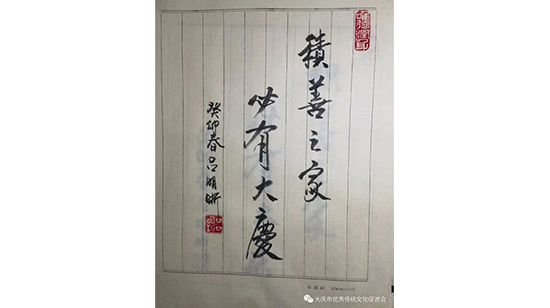 積善之家
必有大慶
癸卯春吕明妍
大庆市优秀传统文化促进会